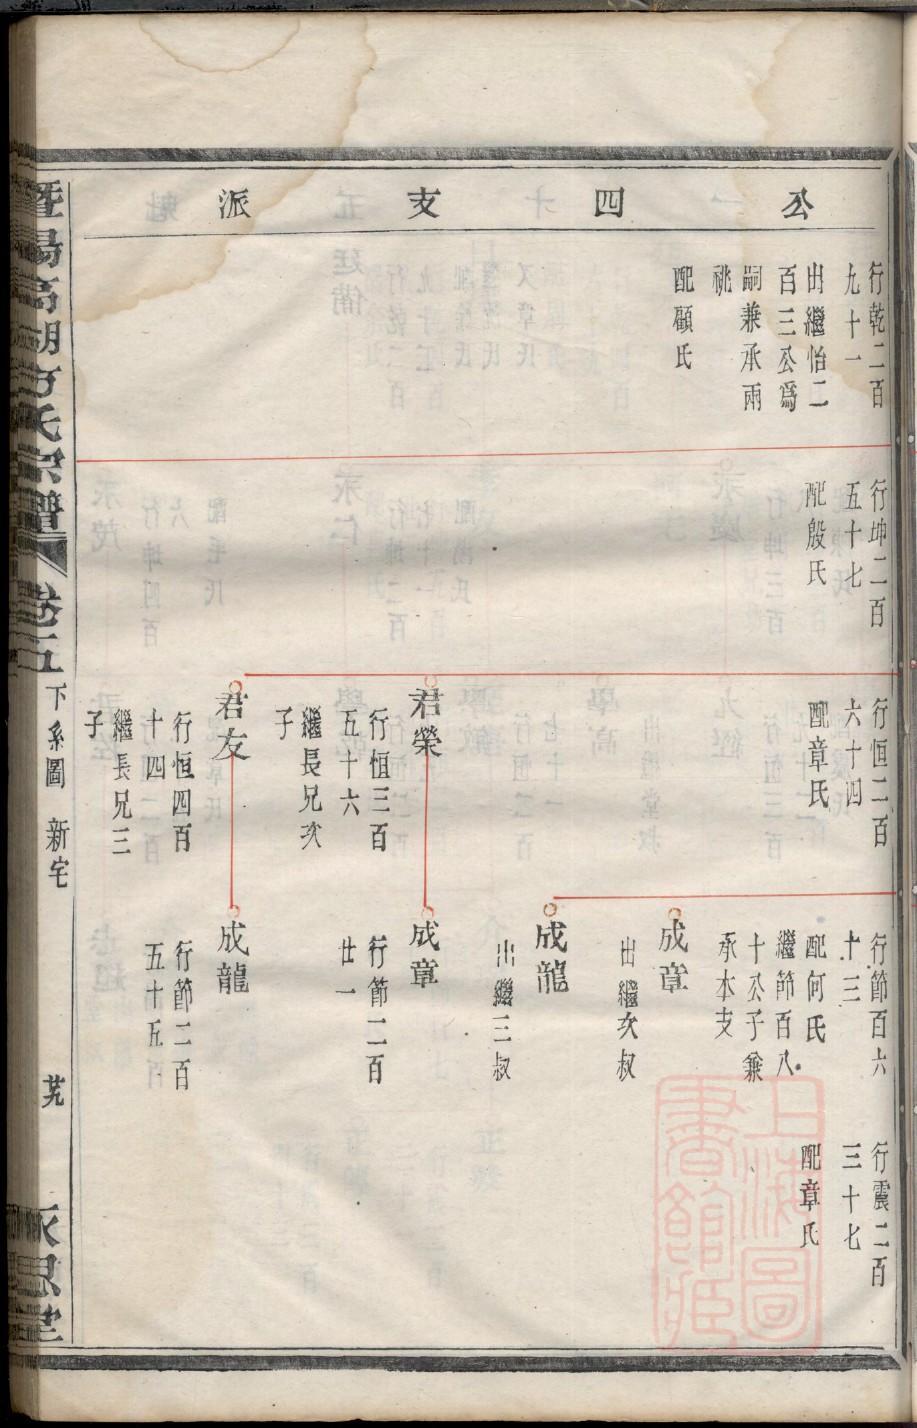 公四支派
行乾二百
九十一
出繼怡二
百三公爲
嗣兼承兩
祧
配顧氏
行坤二百
五十七
配殷氏
行恒二百
六十四
配章氏
君榮
行恒三百
五十六
繼長兄次
子
君友
行恒四百
十四
繼長兄三
子
行節百六
十三
配何氏
繼節百八
十公子兼
承本支
成章
出繼次叔
成龍
出繼三叔
成章
行節二百
廿一
成龍
行節二百
五十五
行震二百
三十七
配章氏
暨陽高湖方氏宗譜
卷二五
下系圖 新宅
永思堂
上海圖書館藏